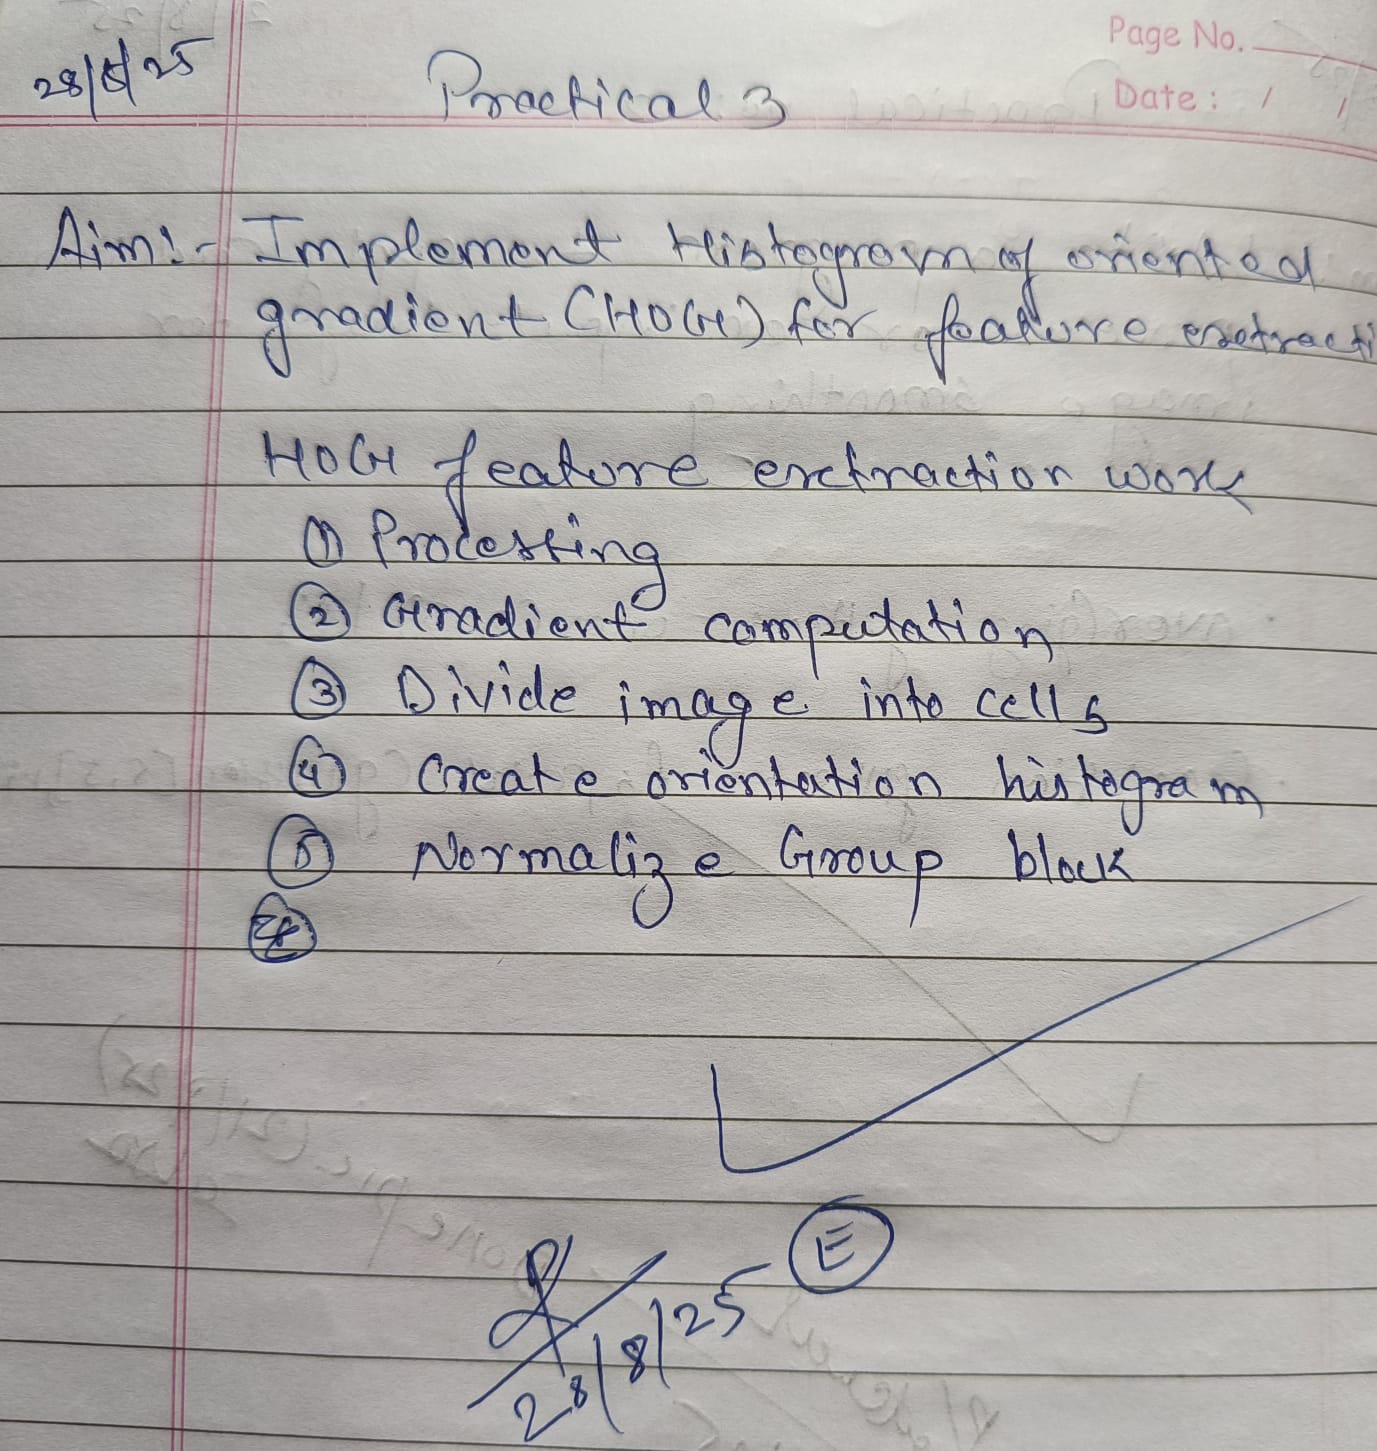 Page No.
28/8/25
Practical 3
Date: / /
Aim:- Implement Histogram of oriented
gradient (HOG) for feature extracti
HOG feature extraction work
① Processing
② Gradient computation
③ Divide image into cells
④ Create orientation histogram
⑤ Normalize Group block
E
28/8/25